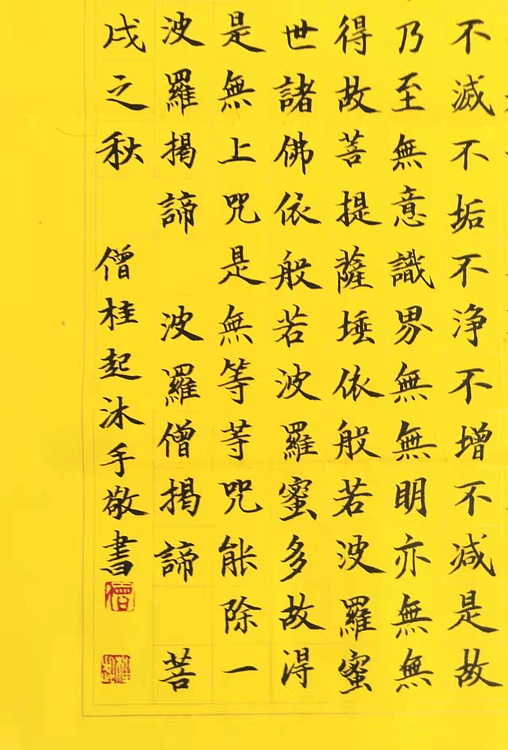 不滅不垢不浄不增不減是故
乃至無意識界無無明亦無無
得故菩提薩埵依般若波羅蜜
世諸佛依般若波羅蜜多故得
是無上咒是無等等咒能除一
波羅揭諦 波羅僧揭諦 菩
戌之秋 僧桂起沐手敬書